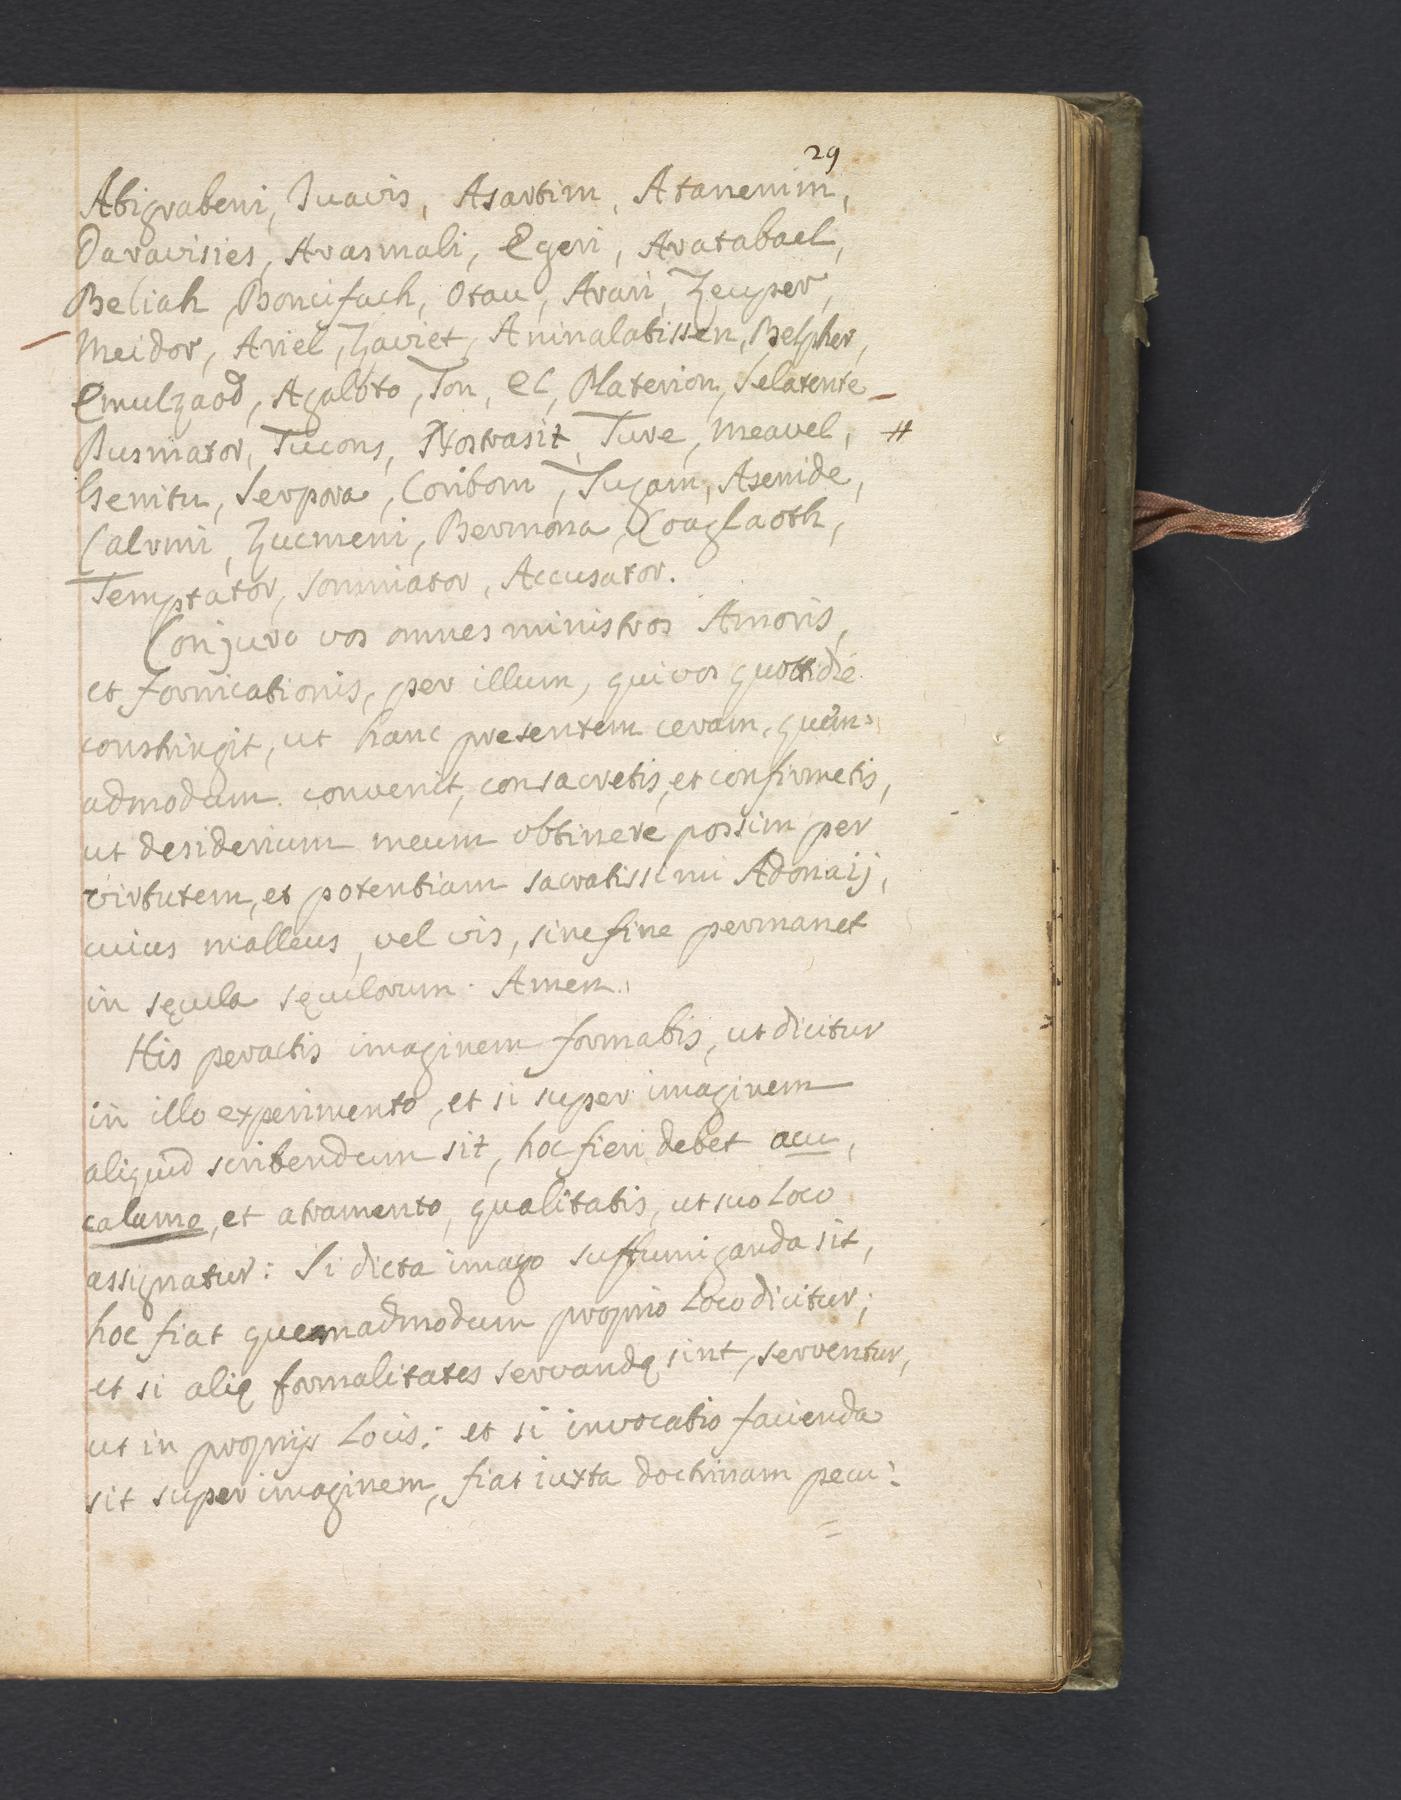 29
Abigrabeni, Juavis, Asartim, Atanenim,
Daravisies, Arasmali, Egeri, Aratabael,
Beliah, Boncifach, Otau, Arari, Zeuper,
Meidor, Ariel, Zaviet, Aninalatissen, Belpher,
Emulzaod, Agaloto, Ton, El, Platerion, Selatente
Busmator, Tucons, Nostrasit, Ture, Meavel, #
Genitu, Serpora, Coribom, Tugam, Asenide,
Calvini, Zucmeni, Bermona, Coaglaoth,
Temptator, Somniator, Accusator.
Conjuro vos omnes ministros Amoris,
et fornicationis, per illum, qui vos quottidie
constringit, ut hanc presentem ceram, quem=
admodum convenit, consacretis, et confirmetis,
ut desiderium meum obtinere possim per
virtutem, et potentiam sacratissimi Adonaij,
cuius malleus, vel vis, sine fine permanet
in sęcula sęculorum. Amen.
His peractis imaginem formabis, ut dicitur
in illo experimento, et si super imaginem
aliquid scribendum sit, hoc fieri debet acu,
calamo, et atramento, qualitatis, ut suo loco
assignatur: Si dicta imago suffumiganda sit,
hoc fiat quemadmodum proprio loco dicitur;
et si alię formalitates servandę sint, serventur,
ut in proprijs locis; et si invocatio facienda
sit super imaginem, fiat iuxta doctrinam pecu=